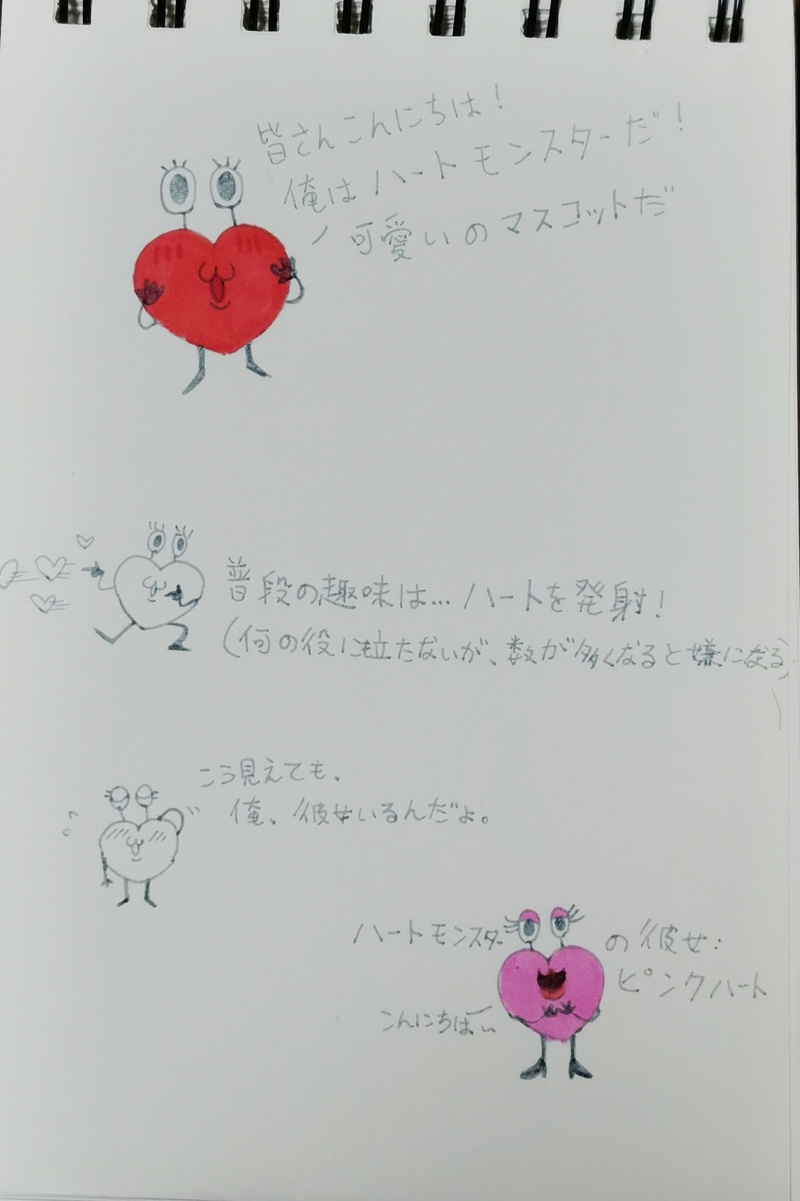 皆さんこんにちは!
俺はハートモンスターだ!
可愛いのマスコットだ
普段の趣味は...ハートを発射!
(何の役に立たないが、数が多くなると嫌になる)
こう見えても、
俺、彼女いるんだよ。
ハートモンスターの彼女:
ピンクハート
こんにちはー